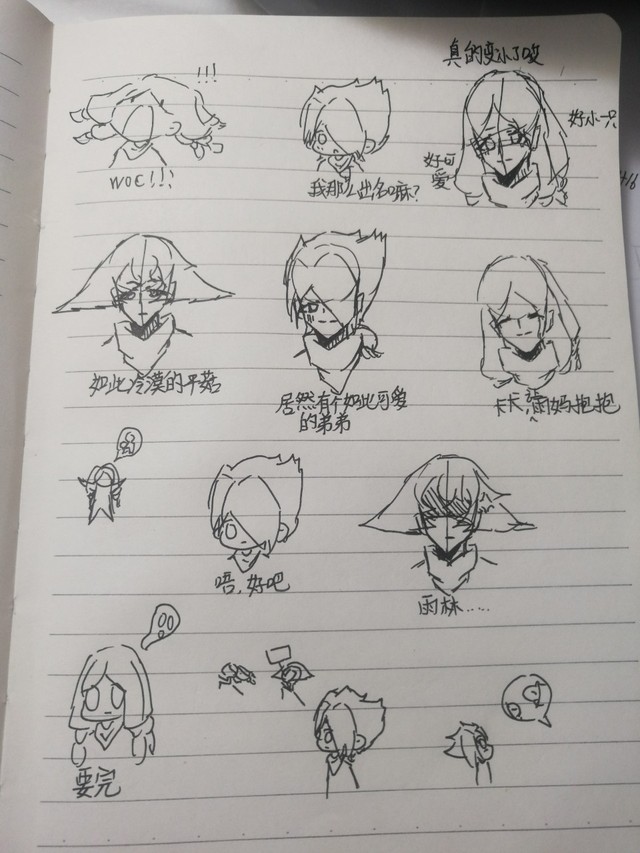 真的变小了哎
!!!
好小一只
好可
爱
woc!!!
我那么出名嘛?
如此冷漠的平菇
居然有个如此可爱
的弟弟
卡卡,雨妈抱抱
唔,好吧
雨林……
要完